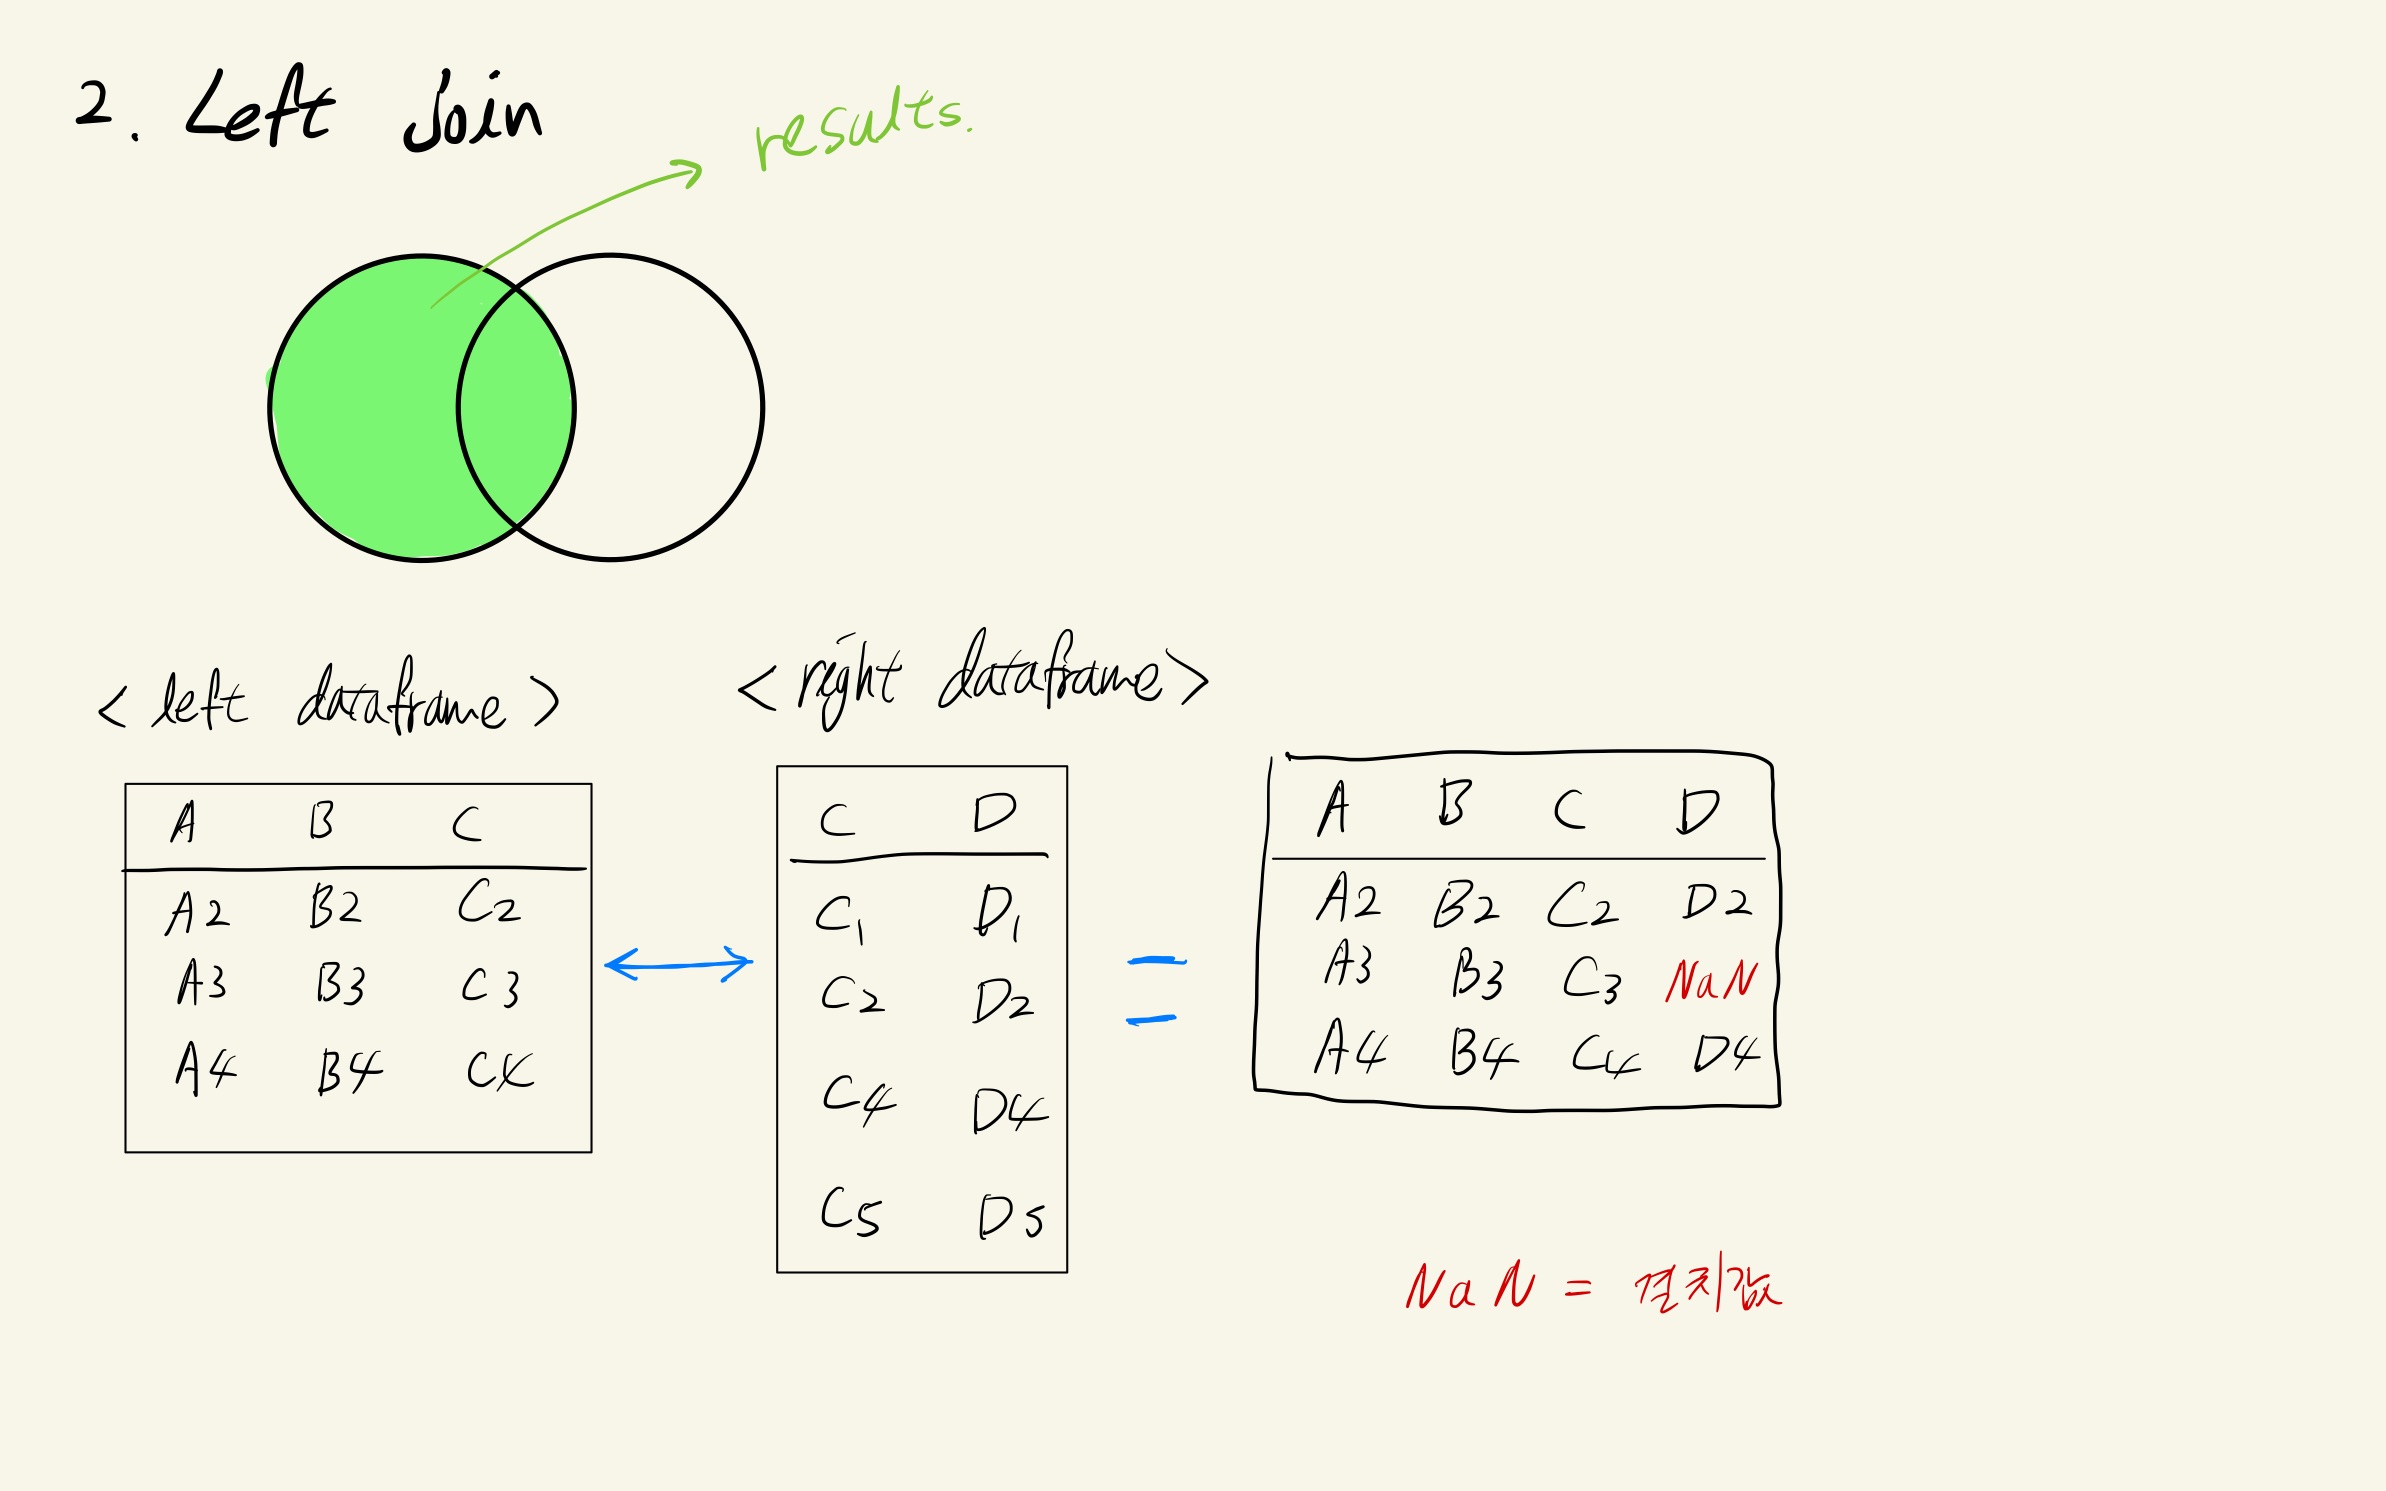 2. Left Join
results.
<left dataframe>
A B C
A2 B2 C2
A3 B3 C3
A4 B4 C4
<right dataframe>
C D
C1 D1
C2 D2
C4 D4
C5 D5
=
A B C D
A2 B2 C2 D2
A3 B3 C3 NaN
A4 B4 C4 D4
NaN = 결측값